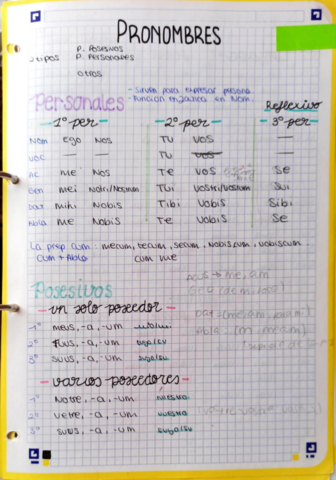 PRONOMBRES
tipos
P. Posesivos
P. Personales
otros
Personales
- Sirven para expresar persona
- Función enfática en Nom.
Reflexivo
- 1º per - - 2º per - - 3º per -
Nom ego Nos Tu vos —
Voc — — Tu vos —
Ac me Nos Te vos Se
Gen mei Nostri/Nostrum Tui vostri/vostrum Sui
Dat mihi Nobis Tibi vobis Sibi
Abla me Nobis Te vobis Se
La prep cum: mecum, tecum, secum, Nobiscum, vobiscum
cum + Abla cum me
Posesivos
- un solo poseedor -
1º meus, -a, -um
2º tuus, -a, -um
3º suus, -a, -um
- varios poseedores -
1º Notre, -a, -um nuestro
2º vetre, -a, -um vuestro
3º suus, -a, -um